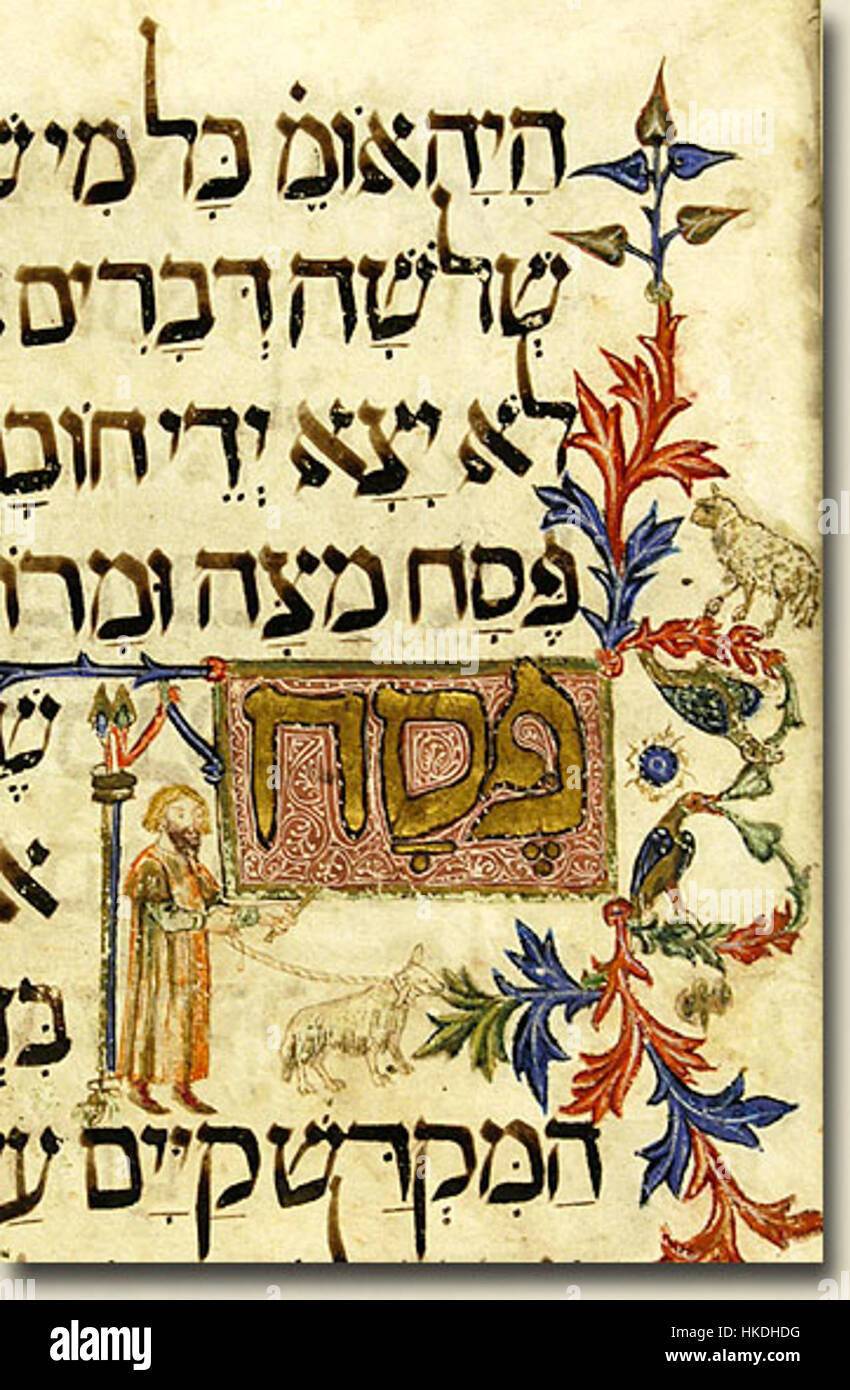 הָיָה אוֹמֵ֗ כָּל מִי שׁ
שְׁלשָׁה דְּבָרִים
לֹא יָצָא יְדֵי חוֹבָ
פֶּסַח מַצָּה וּמָרוֹ
פֶּסַח
שֶׁ
א
הַמִּקְדָּשׁ קַיָּים עַ
alamy
Image ID: HKDHDG
www.alamy.com